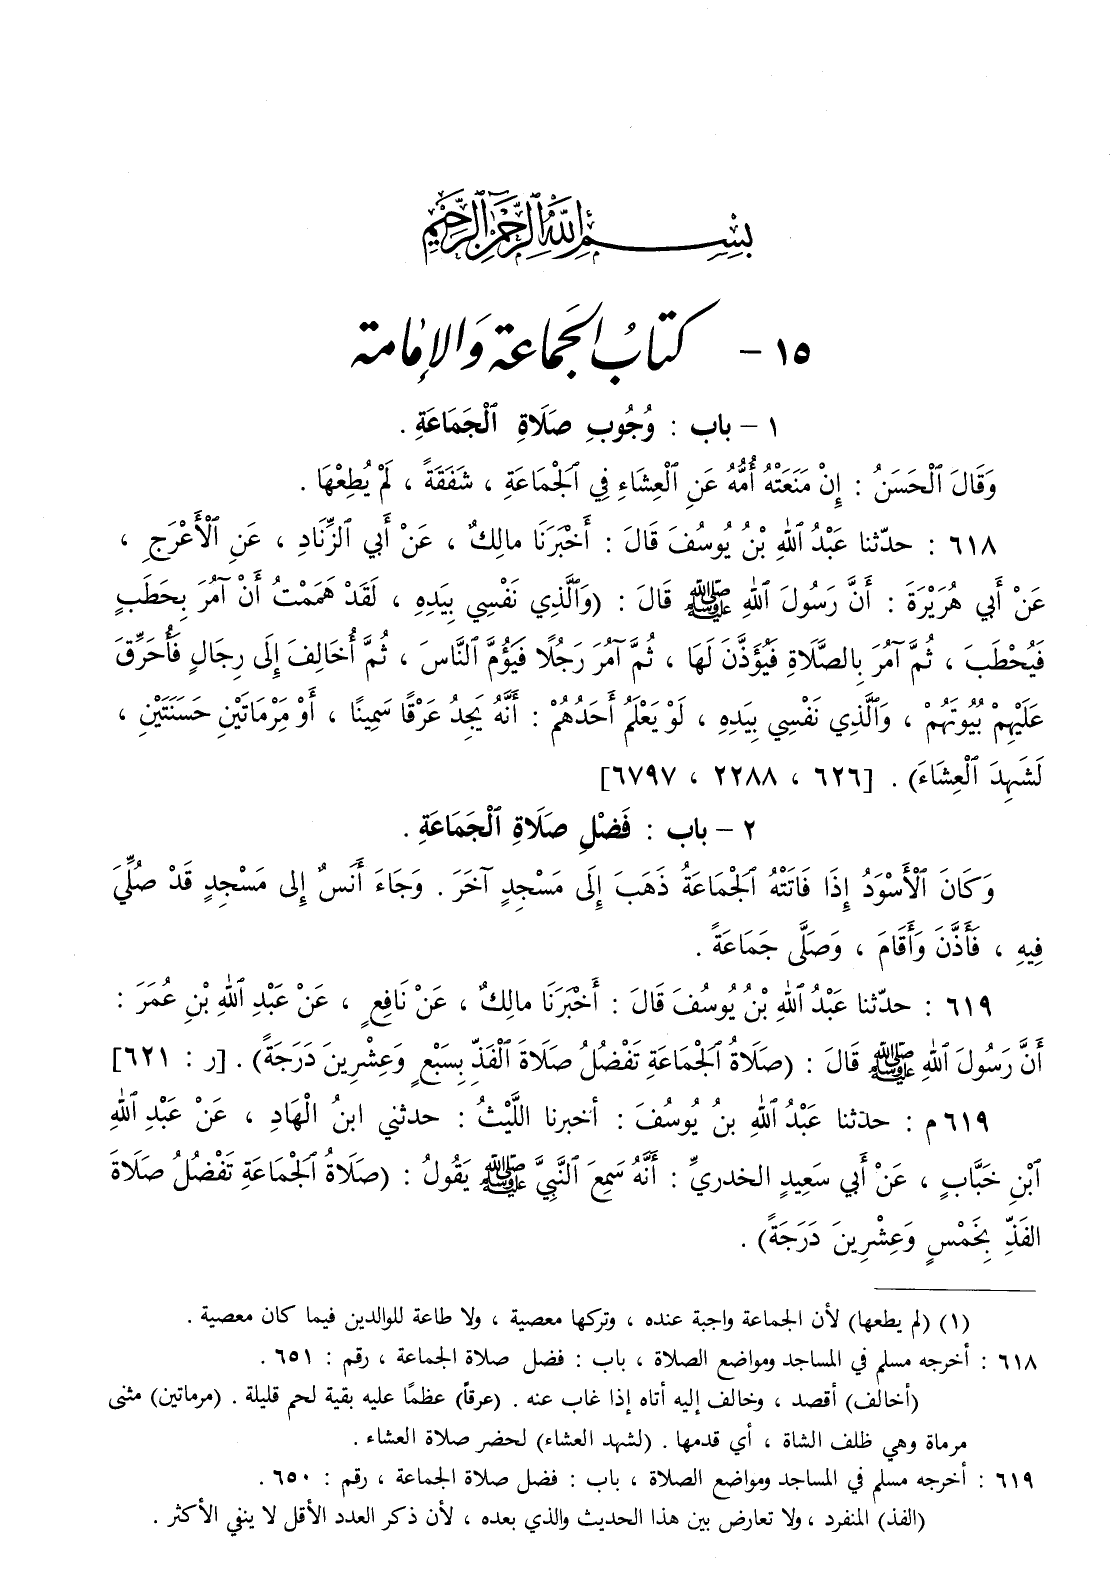 بِسْمِ ٱللَّهِ ٱلرَّحْمَٰنِ ٱلرَّحِيمِ
١٥ - كتابُ الجَمَاعة وَالإمَامة
١ - باب : وُجُوبِ صَلَاةِ ٱلْجَمَاعَةِ .
وَقَالَ ٱلْحَسَنُ : إِنْ مَنَعَتْهُ أُمُّهُ عَنِ ٱلْعِشَاءِ فِي ٱلْجَمَاعَةِ ، شَفَقَةً ، لَمْ يُطِعْهَا .
٦١٨ : حدّثنا عَبْدُ ٱللهِ بْنُ يُوسُفَ قَالَ : أَخْبَرَنَا مالِكٌ ، عَنْ أَبي ٱلزِّنَادِ ، عَنِ ٱلْأَعْرَجِ ،
عَنْ أَبي هُرَيْرَةَ : أَنَّ رَسُولَ ٱللهِ ﷺ قَالَ : (وَٱلَّذِي نَفْسِي بِيَدِهِ ، لَقَدْ هَمَمْتُ أَنْ آمُرَ بِحَطَبٍ
فَيُحْطَبَ ، ثُمَّ آمُرَ بِالصَّلَاةِ فَيُؤَذَّنَ لَهَا ، ثُمَّ آمُرَ رَجُلًا فَيَؤُمَّ ٱلنَّاسَ ، ثُمَّ أُخَالِفَ إِلَى رِجَالٍ فَأُحَرِّقَ
عَلَيْهِمْ بُيُوتَهُمْ ، وَٱلَّذِي نَفْسِي بِيَدِهِ ، لَوْ يَعْلَمُ أَحَدُهُمْ : أَنَّهُ يَجِدُ عَرْقًا سَمِينًا ، أَوْ مِرْمَاتَيْنِ حَسَنَتَيْنِ ،
لَشَهِدَ ٱلْعِشَاءَ) . [٦٢٦ ، ٢٢٨٨ ، ٦٧٩٧]
٢ - باب : فَضْلِ صَلَاةِ ٱلْجَمَاعَةِ .
وَكَانَ ٱلْأَسْوَدُ إِذَا فَاتَتْهُ ٱلْجَمَاعَةُ ذَهَبَ إِلَى مَسْجِدٍ آخَرَ . وَجَاءَ أَنَسٌ إِلى مَسْجِدٍ قَدْ صُلِّيَ
فِيهِ ، فَأَذَّنَ وَأَقَامَ ، وَصَلَّى جَمَاعَةً .
٦١٩ : حدّثنا عَبْدُ ٱللهِ بْنُ يُوسُفَ قَالَ : أَخْبَرَنَا مالِكٌ ، عَنْ نَافِعٍ ، عَنْ عَبْدِ ٱللهِ بْنِ عُمَرَ :
أَنَّ رَسُولَ ٱللهِ ﷺ قَالَ : (صَلَاةُ ٱلْجَمَاعَةِ تَفْضُلُ صَلَاةَ ٱلْفَذِّ بِسَبْعٍ وَعِشْرِينَ دَرَجَةً) . [ر : ٦٢١]
٦١٩ م : حدّثنا عَبْدُ ٱللهِ بنُ يُوسُفَ : أخبرنا اللَّيْثُ : حدثني ابنُ الْهَادِ ، عَنْ عَبْدِ ٱللهِ
ٱبْنِ خَبَّابٍ ، عَنْ أَبي سَعِيدٍ الخدريِّ : أَنَّهُ سَمِعَ ٱلنَّبِيَّ ﷺ يَقُولُ : (صَلَاةُ ٱلْجَمَاعَةِ تَفْضُلُ صَلَاةَ
الفَذِّ بِخَمْسٍ وَعِشْرِينَ دَرَجَةً) .
(١) (لم يطعها) لأن الجماعة واجبة عنده ، وتركها معصية ، ولا طاعة للوالدين فيما كان معصية .
٦١٨ : أخرجه مسلم في المساجد ومواضع الصلاة ، باب : فضل صلاة الجماعة ، رقم : ٦٥١ .
(أخالف) أقصد ، وخالف إليه أتاه إذا غاب عنه . (عرقاً) عظمًا عليه بقية لحم قليلة . (مرماتين) مثنى
مرماة وهي ظلف الشاة ، أي قدمها . (لشهد العشاء) لحضر صلاة العشاء .
٦١٩ : أخرجه مسلم في المساجد ومواضع الصلاة ، باب : فضل صلاة الجماعة ، رقم : ٦٥٠ .
(الفذ) المنفرد ، ولا تعارض بين هذا الحديث والذي بعده ، لأن ذكر العدد الأقل لا ينفي الأكثر .